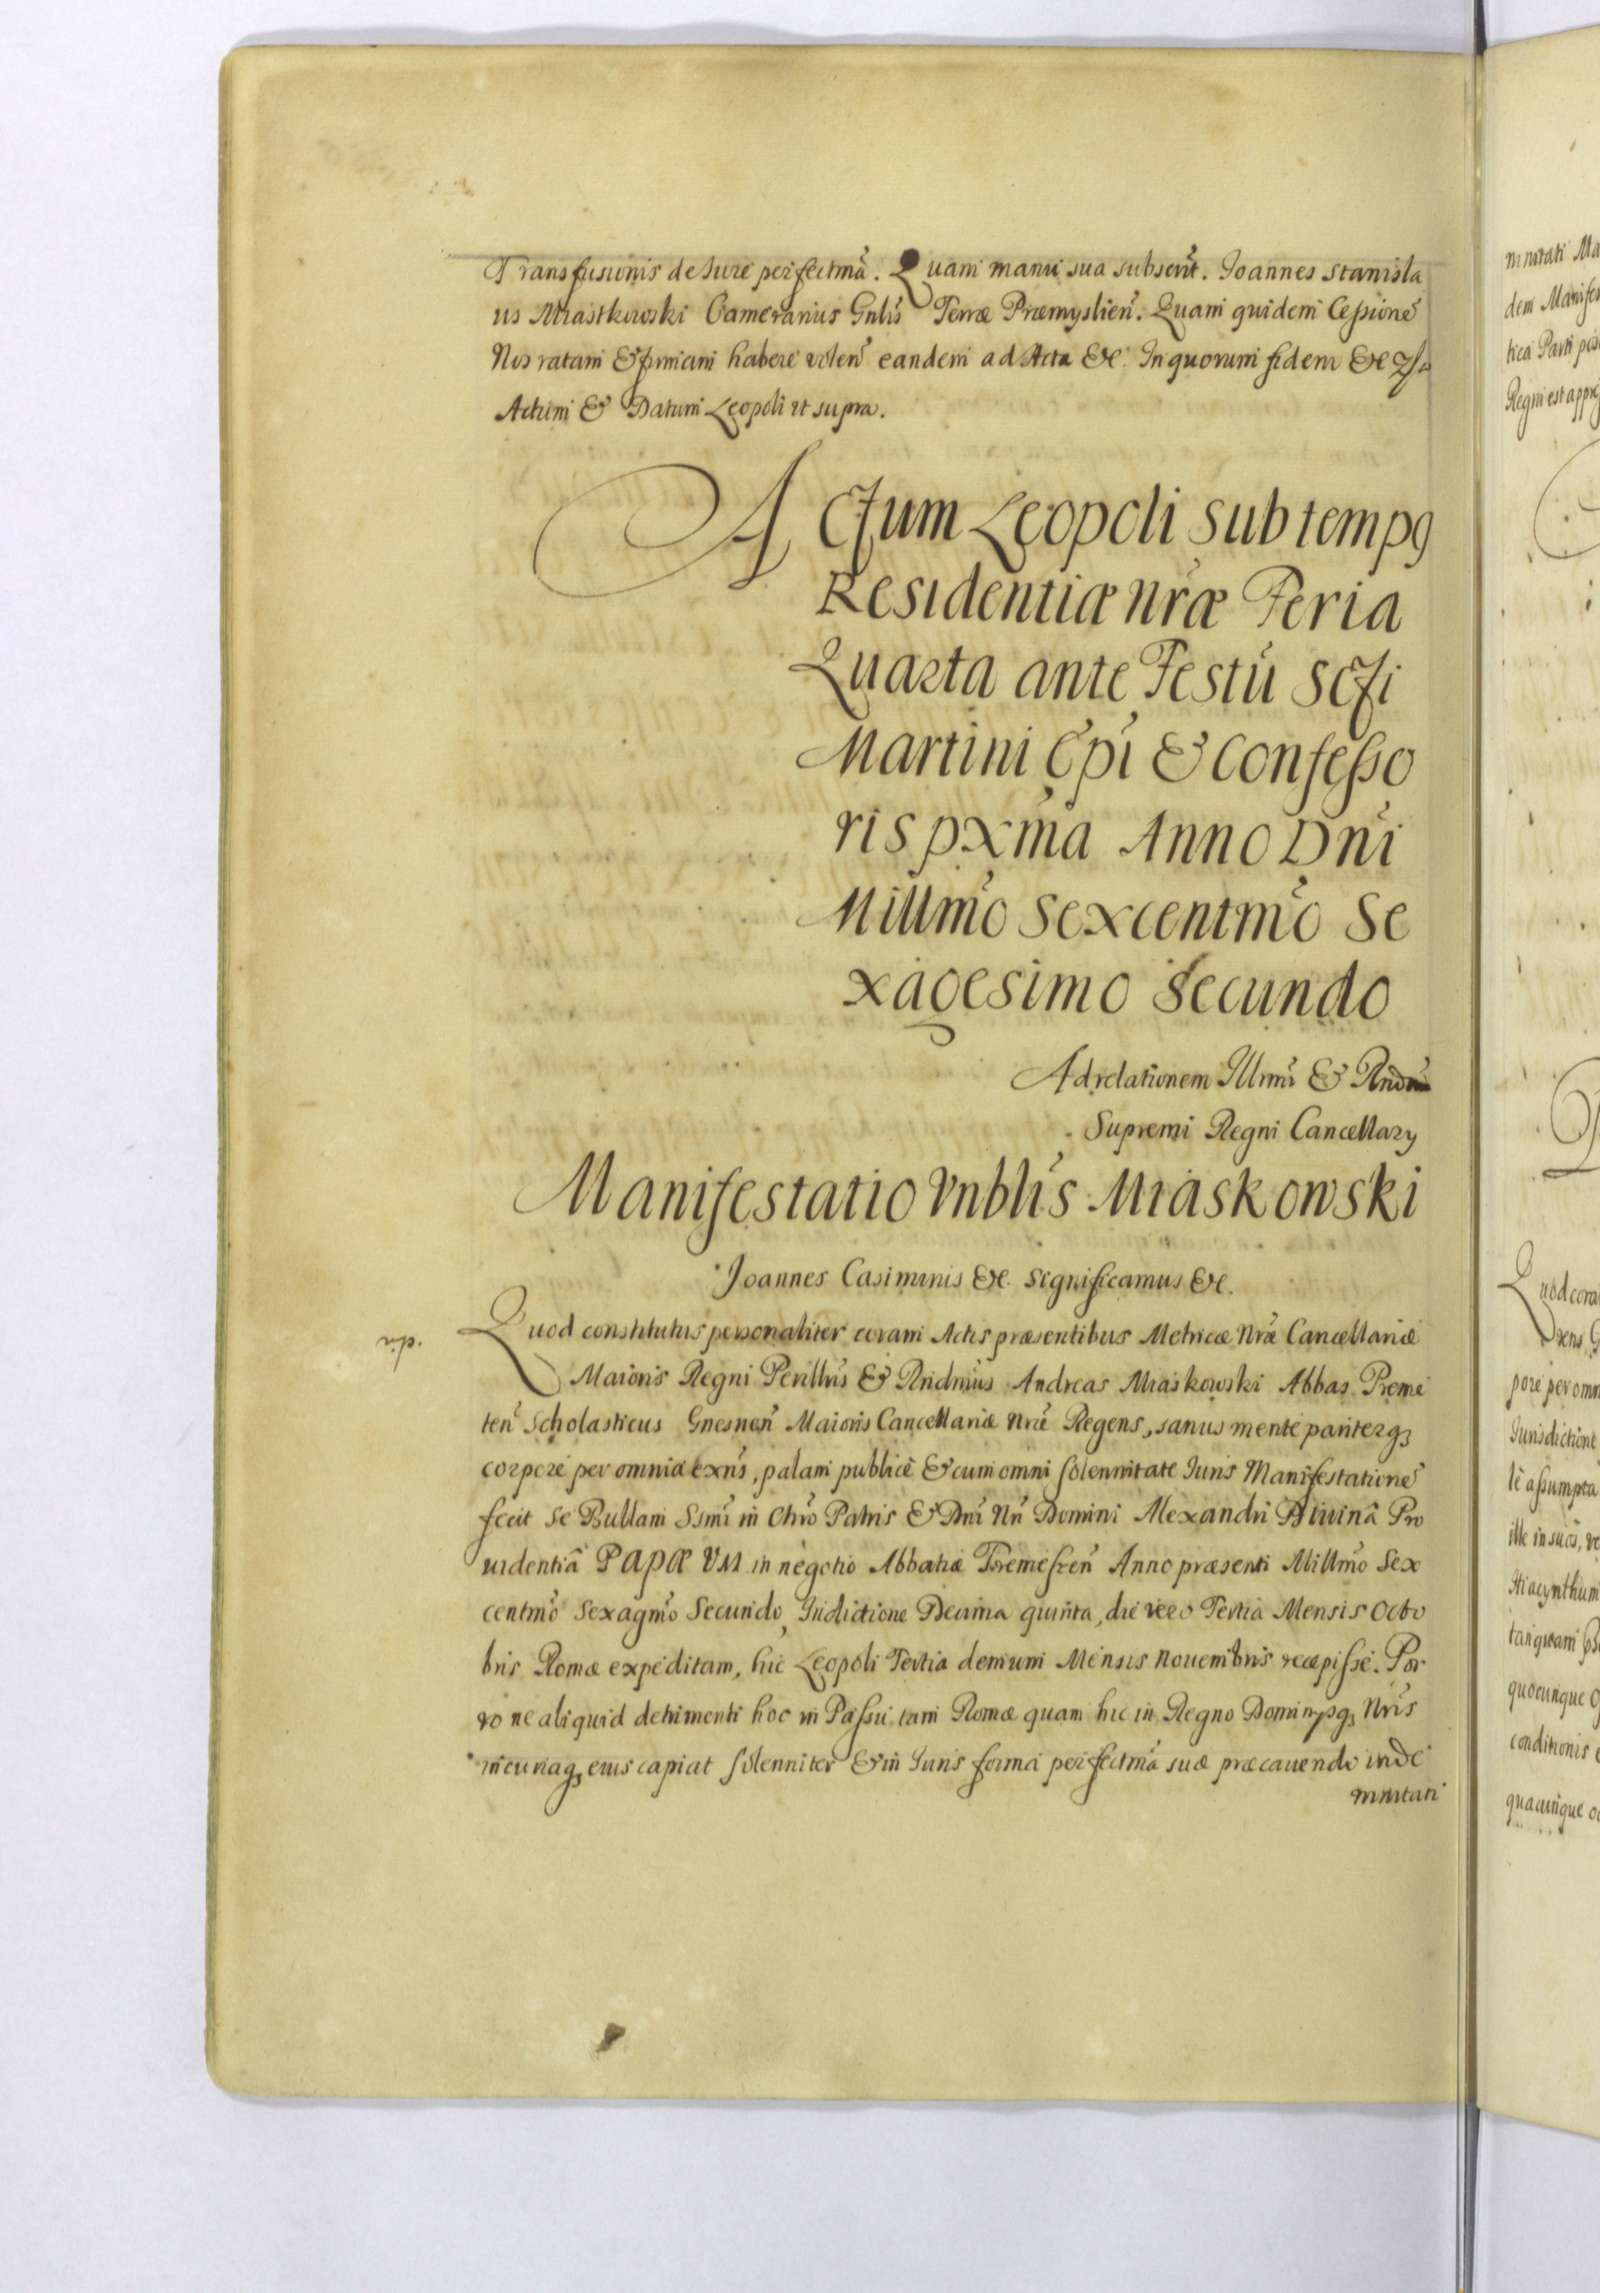 Transfusionis de Iure perfectmã. Quam manu sua subscrit. Joannes Stanisla
us Miastkowski Camerarius Gnlis Terræ Præmyslien. Quam quidem Cessionẽ
Nos ratam & firmam habere volen eandem ad Acta &c. In quorum fidem &c
Actum & Datum Leopoli ut supra.
Actum Leopoli sub temp9
Residentiæ nræ Feria
Quarta ante Festũ Scti
Martini Epi & Confesso
ris pxma Anno Dni
Millmo Sexcentmo Se
xagesimo Secundo
Ad relationem Illmi & Rndmi
Supremi Regni Cancellary
Manifestatio Vnblis Miaskowski
Joannes Casimirus &c. Significamus &c.
Quod constitutus personaliter coram Actis præsentibus Metricæ Nræ Cancellariæ
Maioris Regni Perillris & Rndmus Andreas Miaskowski Abbas Preme
ten Scholasticus Gnesnen Maioris Cancellariæ Nræ Regens, sanus mente pariterq3
corpore per omnia exns, palam publice & cum omni solennitate Iuris Manifestationẽ
fecit Se Bullam Ssmi in Chro Patris & Dni Nri Domini Alexandri Divinâ Pro
uidentiâ PAPÆ VII in negotio Abbatiæ Premeszen Anno præsenti Millmo Sex
centmo Sexagmo Secundo, Indictione Decima quinta, die vero Tertia Mensis Octo
bris Romæ expeditam, hic Leopoli Tertia demum Mensis Nouembris recepisse. Por
ro ne aliquid detrimenti hoc in Passu tam Romæ quam hic in Regno Dominysq3 Nris
incuriaq3 eius capiat solenniter & in Iuris forma perfectmã suæ præcavendo inde
mnitati
mnitati Ma
dem Manifes
tica Parti
Regni est
Quod cora
pore per omn
Iurisdictione
lè assumpta
ille in suos,
Hiacynthum
tanquam
quocunque
conditionis
quacunque